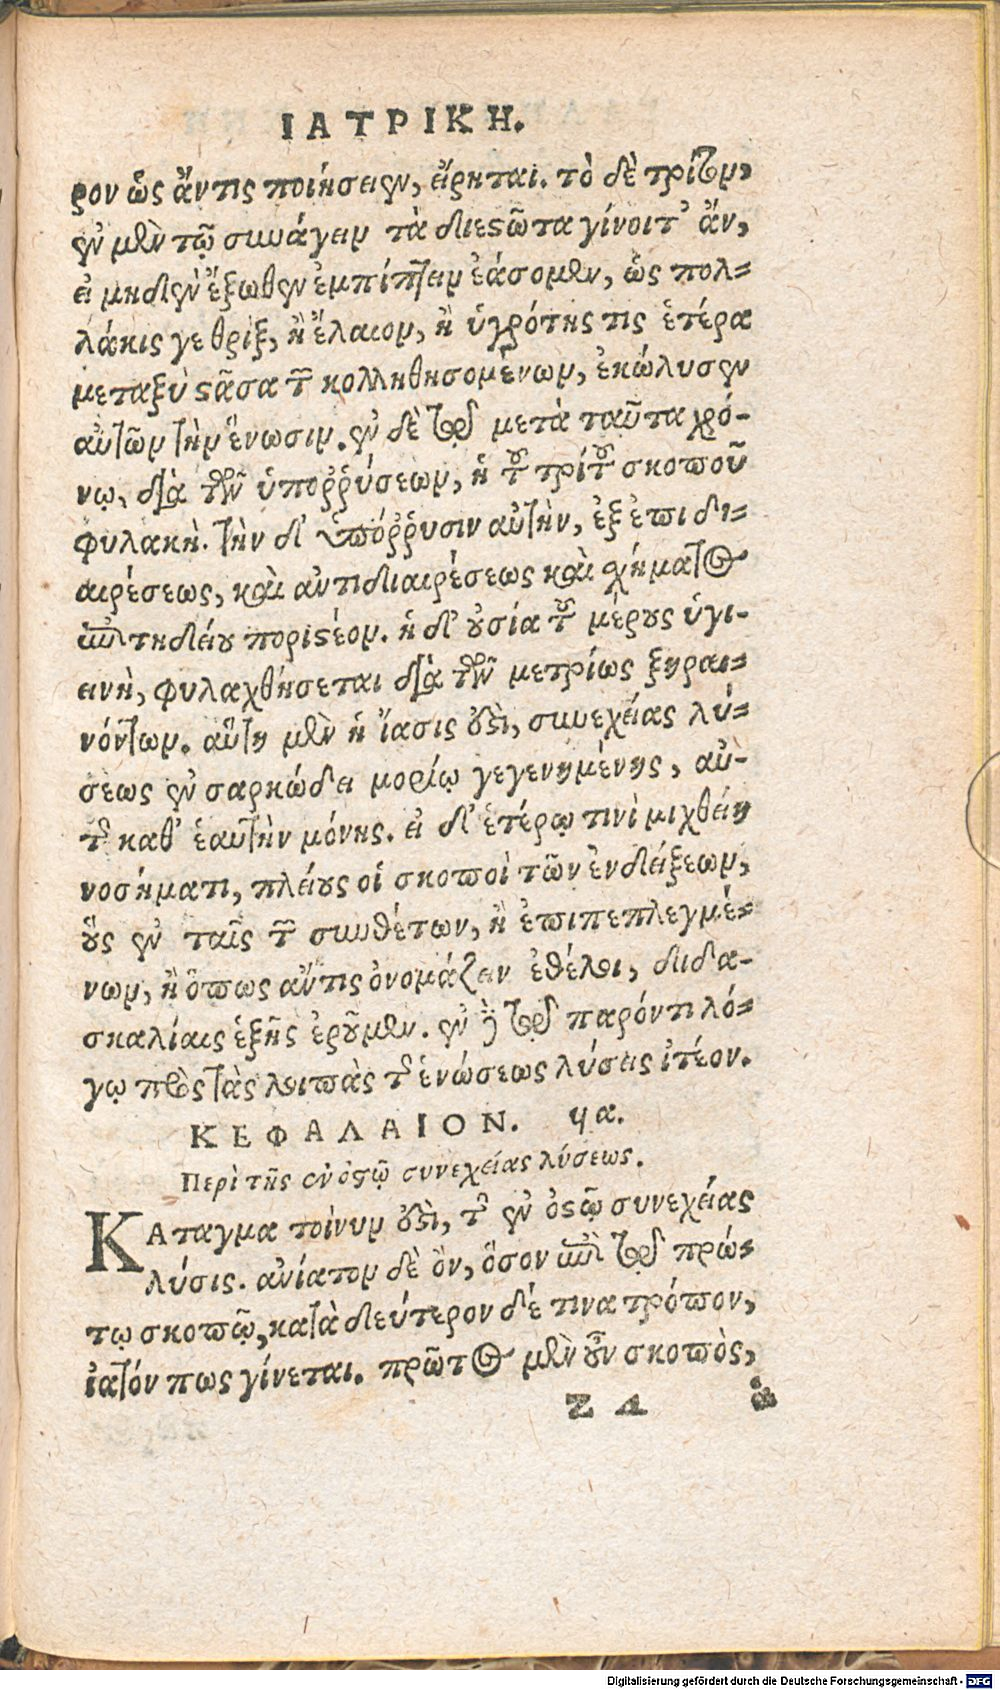 ΙΑΤΡΙΚΗ.
ρον ὡς ἄν τις ποιήσειεν, εἴρηται. τὸ δὲ τρίτον,
ἐν μὲν τῷ συνάγειν τὰ διεστῶτα γίνοιτ' ἄν,
εἰ μηδὲν ἔξωθεν ἐμπίπτειν ἐάσομεν, ὡς πολ-
λάκις γε θρὶξ, ἢ ἔλαιον, ἢ ὑγρότης τις ἑτέρα
μεταξὺ στᾶσα τῶν κολληθησομένων, ἐκώλυσεν
αὐτῶν τὴν ἕνωσιν. ἐν δὲ τῷ μετὰ ταῦτα χρό-
νῳ, διὰ τῶν ὑποῤῥύσεων, ἡ τοῦ τρίτου σκοποῦ
φυλακή. τὴν δ' ὑπόῤῥυσιν αὐτὴν, ἐξ ἐπιδι-
αιρέσεως, καὶ ἀντιδιαιρέσεως καὶ χήματος
ἐπιτηδείου ποριστέον. ἡ δ' οὐσία τοῦ μέρους ὑγι-
εινὴ, φυλαχθήσεται διὰ τῶν μετρίως ξηραι-
νόντων. αὕτη μὲν ἡ ἴασις ἐστὶ, συνεχείας λύ-
σεως ἐν σαρκώδει μορίῳ γεγενημένης, αὐ-
τῆς καθ' ἑαυτὴν μόνης. εἰ δ' ἑτέρῳ τινὶ μιχθείη
νοσήματι, πλείους οἱ σκοποὶ τῶν ἐνδείξεων,
οὓς ἐν ταῖς τῶν συνθέτων, ἢ ἐπιπεπλεγμέ-
νων, ἢ ὅπως ἄν τις ὀνομάζειν ἐθέλοι, διδα-
σκαλίαις ἑξῆς ἐροῦμεν. ἐν δὲ τῷ παρόντι λό-
γῳ πρὸς τὰς λοιπὰς τῆς ἑνώσεως λύσεις ἰτέον.
ΚΕΦΑΛΑΙΟΝ. ϟα.
Περὶ τῆς ἐν ὀστῷ συνεχείας λύσεως.
ΚΑταγμα τοίνυν ἐστὶ, τῆς ἐν ὀστῷ συνεχείας
λύσις. ἀνίατον δὲ ὂν, ὅσον ἐπὶ τῷ πρώ-
τῳ σκοπῷ, κατὰ δεύτερον δέ τινα τρόπον,
ἰατόν πως γίνεται. πρῶτος μὲν οὖν σκοπὸς,
Z 4 ἡ
Digitalisierung gefördert durch die Deutsche Forschungsgemeinschaft - DFG